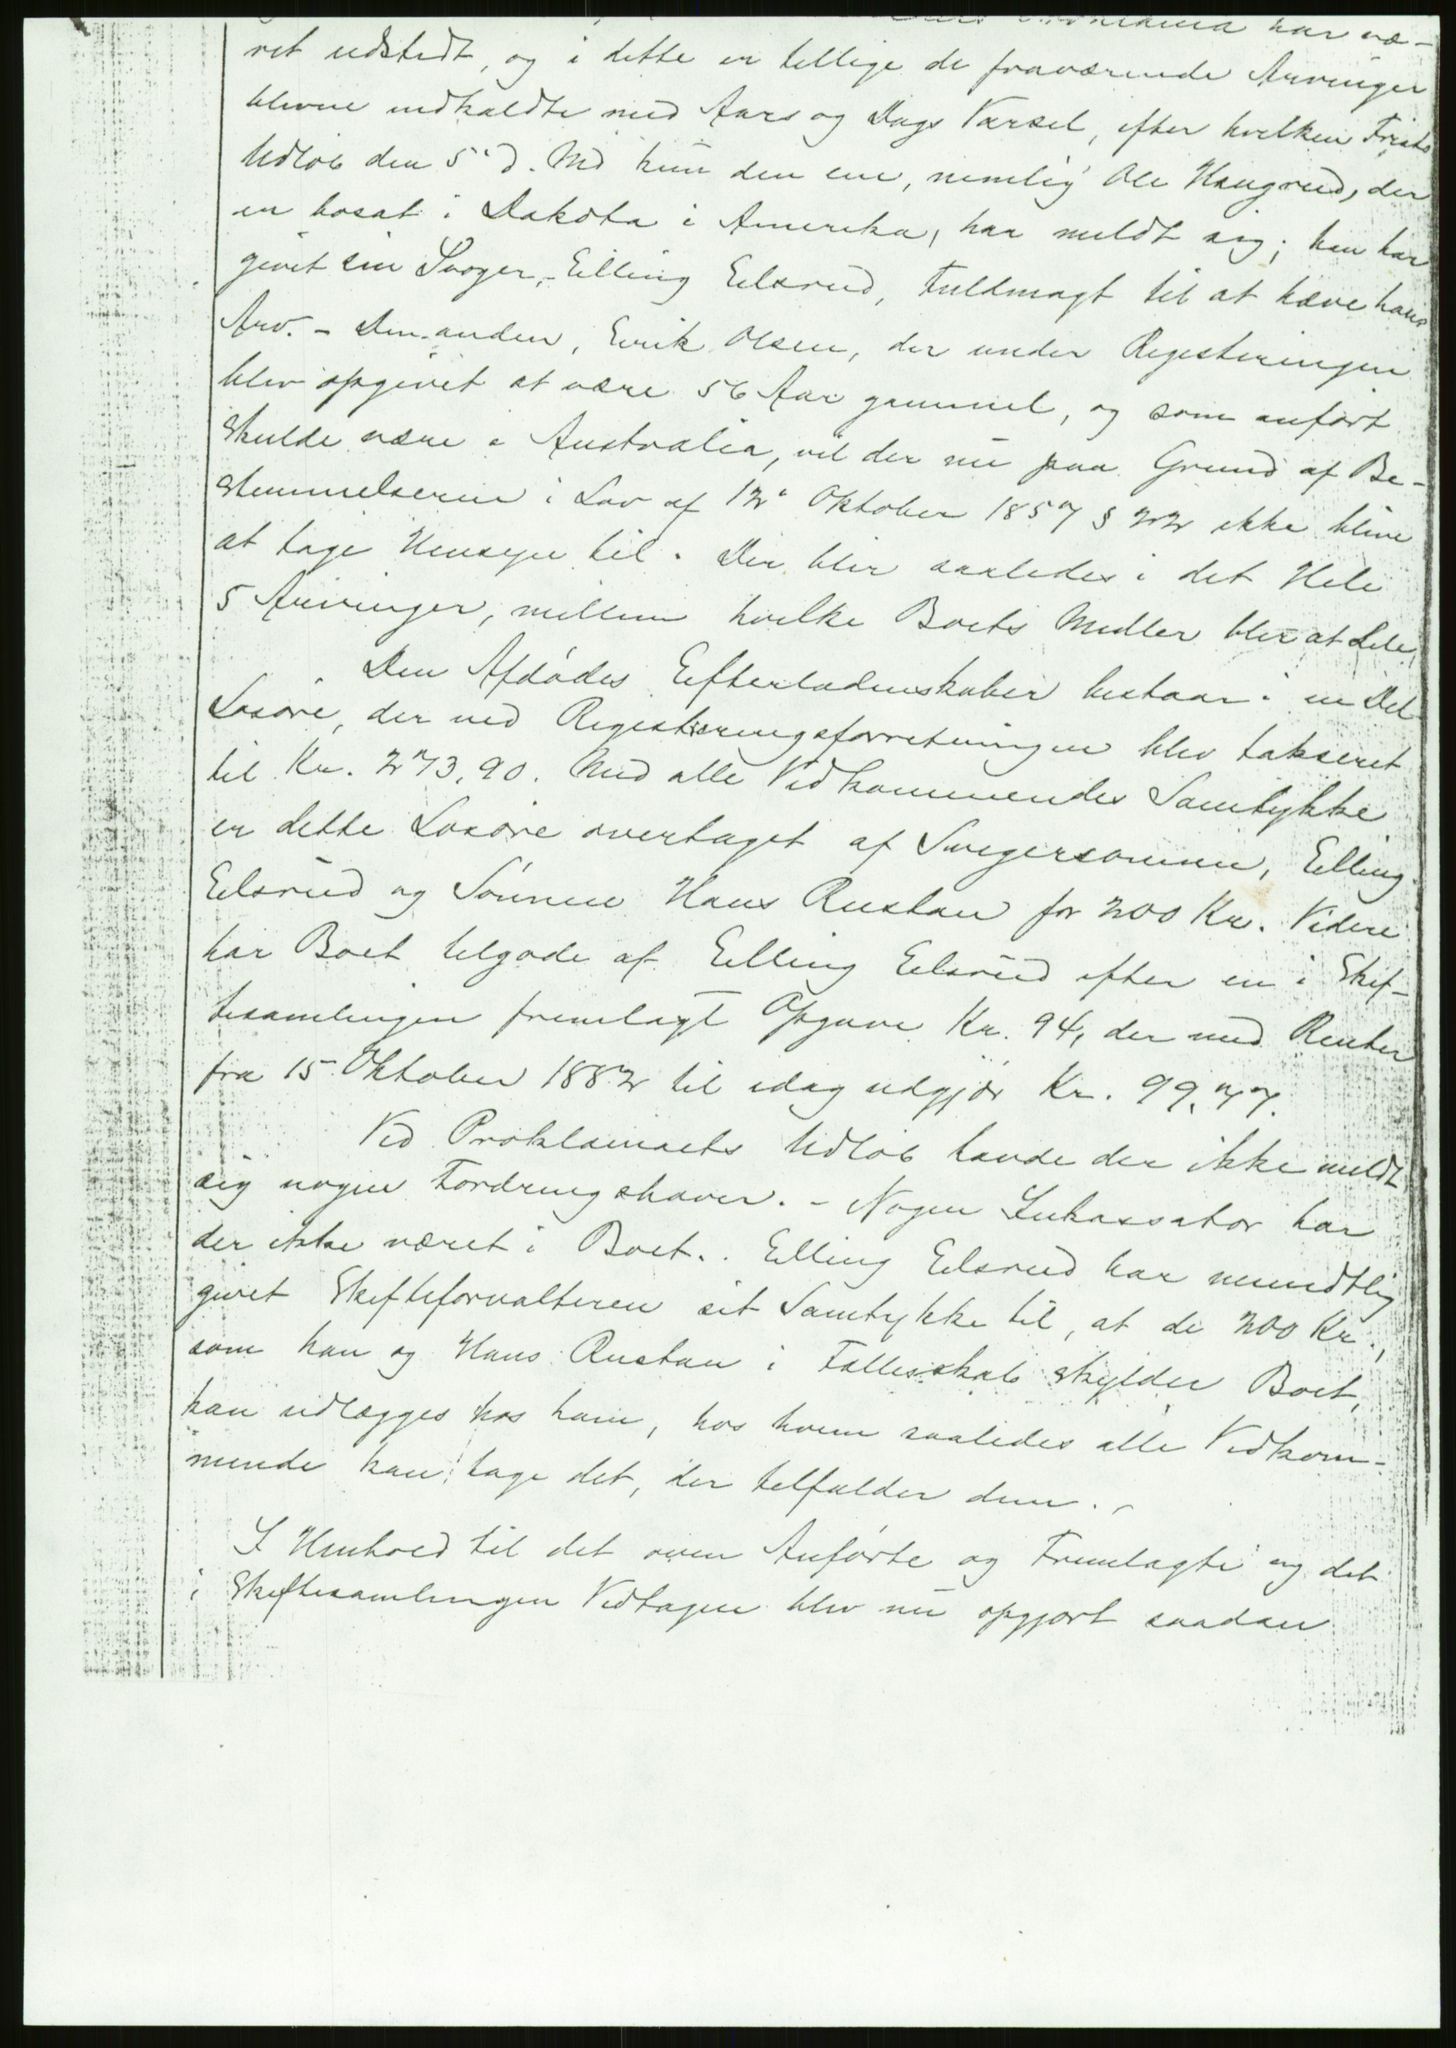 har væ-
ret udstedt, og i dette er tillige de fraværende Arvinger
blevne indkaldte med Aars og Dags Varsel, efter hvilken Frists
Udløb den 5' d. Md kun den ene, nemlig Ole Haugrud, der
er bosat i Dakota i Amerika, har meldt sig; han har
givet sin Svoger, Elling Eilsrud, Fuldmagt til at hæve hans
Arv. - Den anden, Eirik Olsen, der under Registeringen
blev opgivet at være 56 Aar gammel, og som anført
skulde være i Australia, vil der nu paa Grund af Be-
stemmelserne i Lov af 12' Oktober 1857 § 22 ikke blive
at tage Hensyn til. Der blir saaledes i det Hele
5 Arvinger, mellem hvilke Boets Midler blir at dele.
Den Afdødes Efterladenskaber bestaar i en Del
Løsøre, der ved Registeringsforretningen blev takseret
til Kr. 273,90. Med alle Vedkommendes Samtykke
er dette Løsøre overtaget af Svigersønnen, Elling
Eilsrud og Sønnen Hans Rustan for 200 Kr. Videre
har Boet tilgode af Elling Eilsrud efter en i Skif-
tesamlingen fremlagt Opgave Kr. 94, der med Renter
fra 15 Oktober 1882 til idag udgjør Kr. 99,77.
Ved Proklamaets Udløb havde der ikke meldt
sig nogen Fordringshaver. - Nogen Inkassator har
der ikke været i Boet. Elling Eilsrud har mundtlig
givet Skifteforvalteren sit Samtykke til, at de 200 Kr.,
som han og Hans Rustan i Fællesskab skylder Boet,
kan udlægges hos ham, hos hvem saaledes alle Vedkom-
mende kan tage det, der tilfalder dem. -
I Henhold til det oven Anførte og Fremlagte og det
i Skiftesamlingen Vedtagne blev nu opgjort saadan